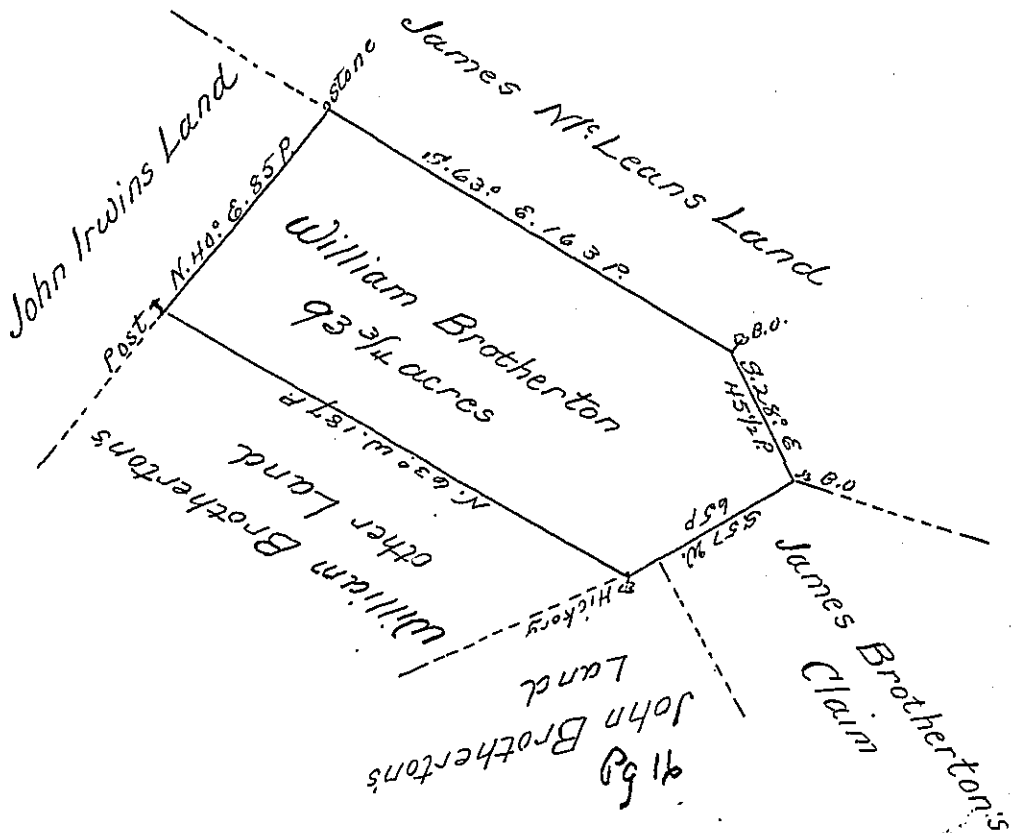 John Irwins Land
Stone
James McLeans Land
N. 40° E. 85 P.
S. 63° E. 163 P.
Post
William Brotherton
93 3/4 acres
B.O.
S. 28° E
45 1/2 P.
B.O
S 57 W.
65 P
N. 63° W. 187 P.
Hickory
William Brothertons
other Land
John Brotherton's
Land
James Brotherton's
Claim